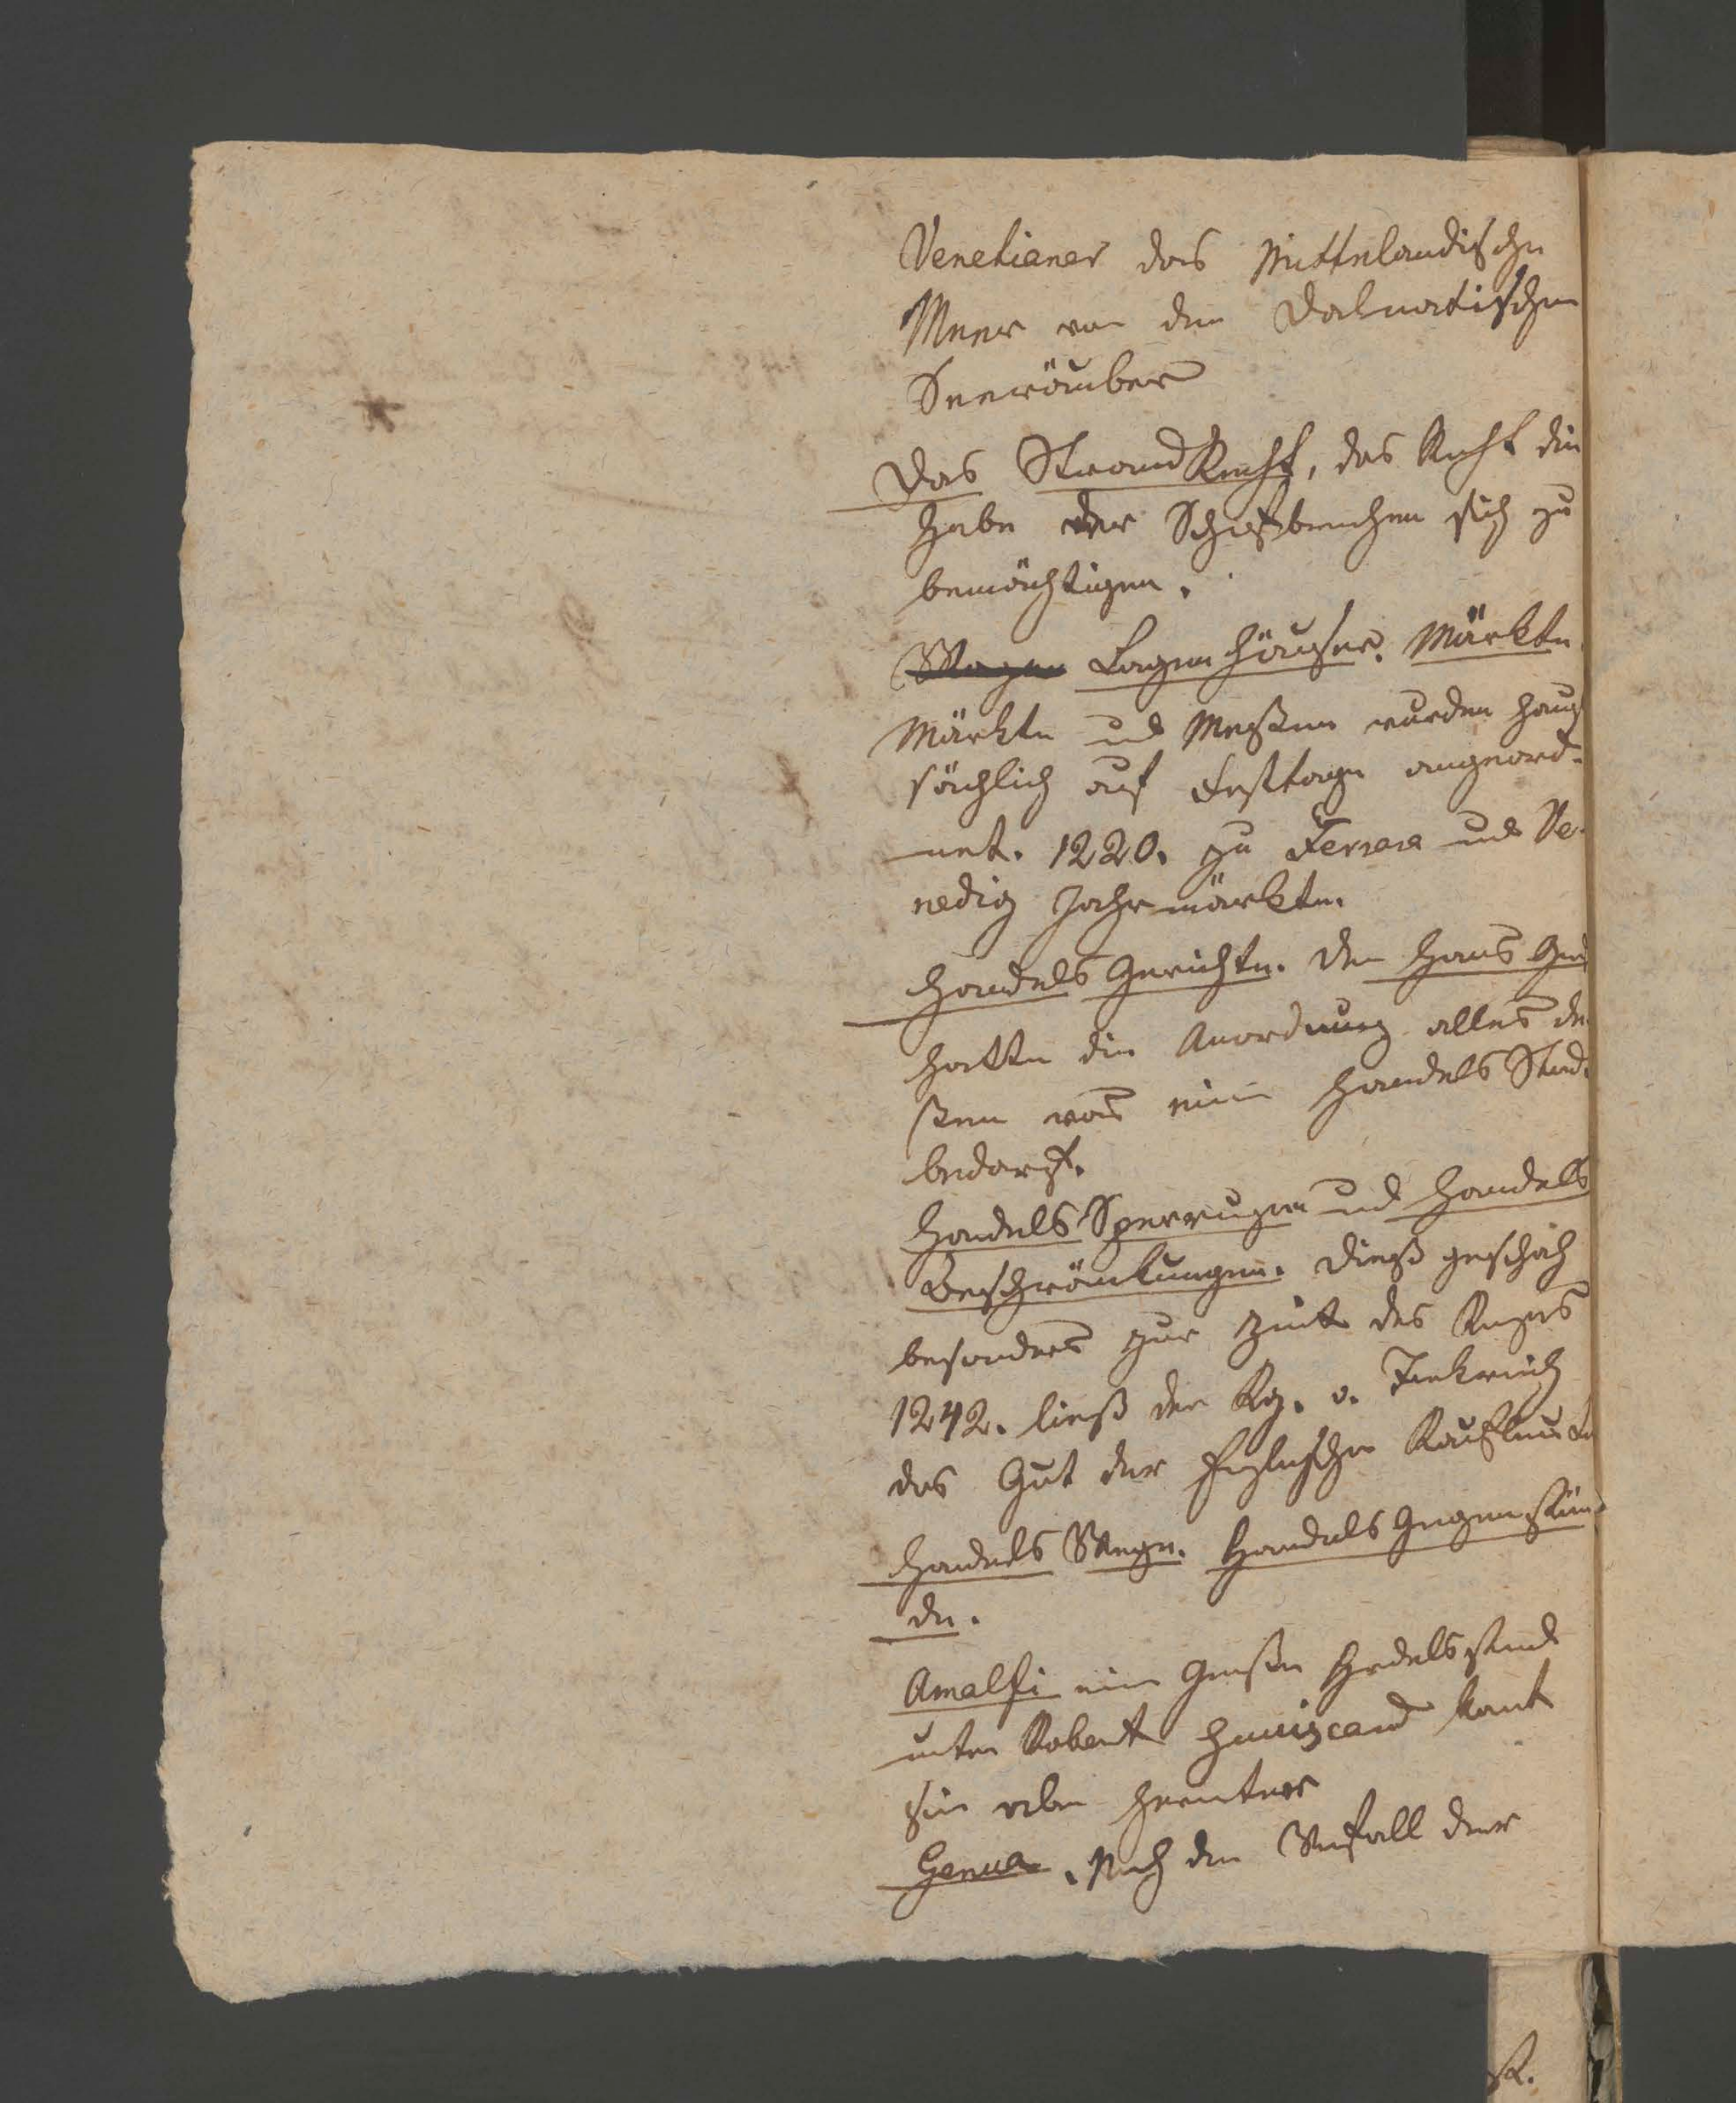 Venetianer das Mittelländische
Meer von den Dalmatischen
Seeräuber
Das StrandRecht, das Recht die
Habe der Schifbruchen sich zu
bemächtigen.
Wagen Lagerhäuser. Märkte
Märkte und Messen wurden haupt
sächlich auf Festtage angeord-
net. 1220. zu Ferrara und Ve-
nedig Jahrmärkte.
Handels Gerichte. Der Hans
hatte die Anordnung alles de
ßen was eine Handels Stad
bedarf.
Handels Sperrungen und Handels
Beschränkungen. Dieß geschah
besonders zur Zeit des Krieges
1242. ließ der Kg. v. Frankreich
das Gut der Englischen Kaufleute
Handels Wege. Handels Gegenstän-
de.
Amalfi eine große Handelsstad
unter Robert Guiscard kam
sie aber herunter
Genua. Nach den Verfall der
R.